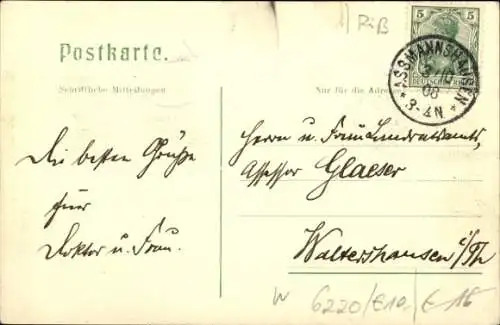 Riß
5 5
DEUTSCHES REICH
ASSMANNSHAUSEN
08
* 3-4N *
Postkarte.
Schriftliche Mitteilungen
Nur für die Adresse
Die besten Grüße
für
Doktor u. Frau.
Herrn u. Frau Landratsamts,
Assessor Glaeser
Waltershausen i/Th
W 6220/E10,- E 15